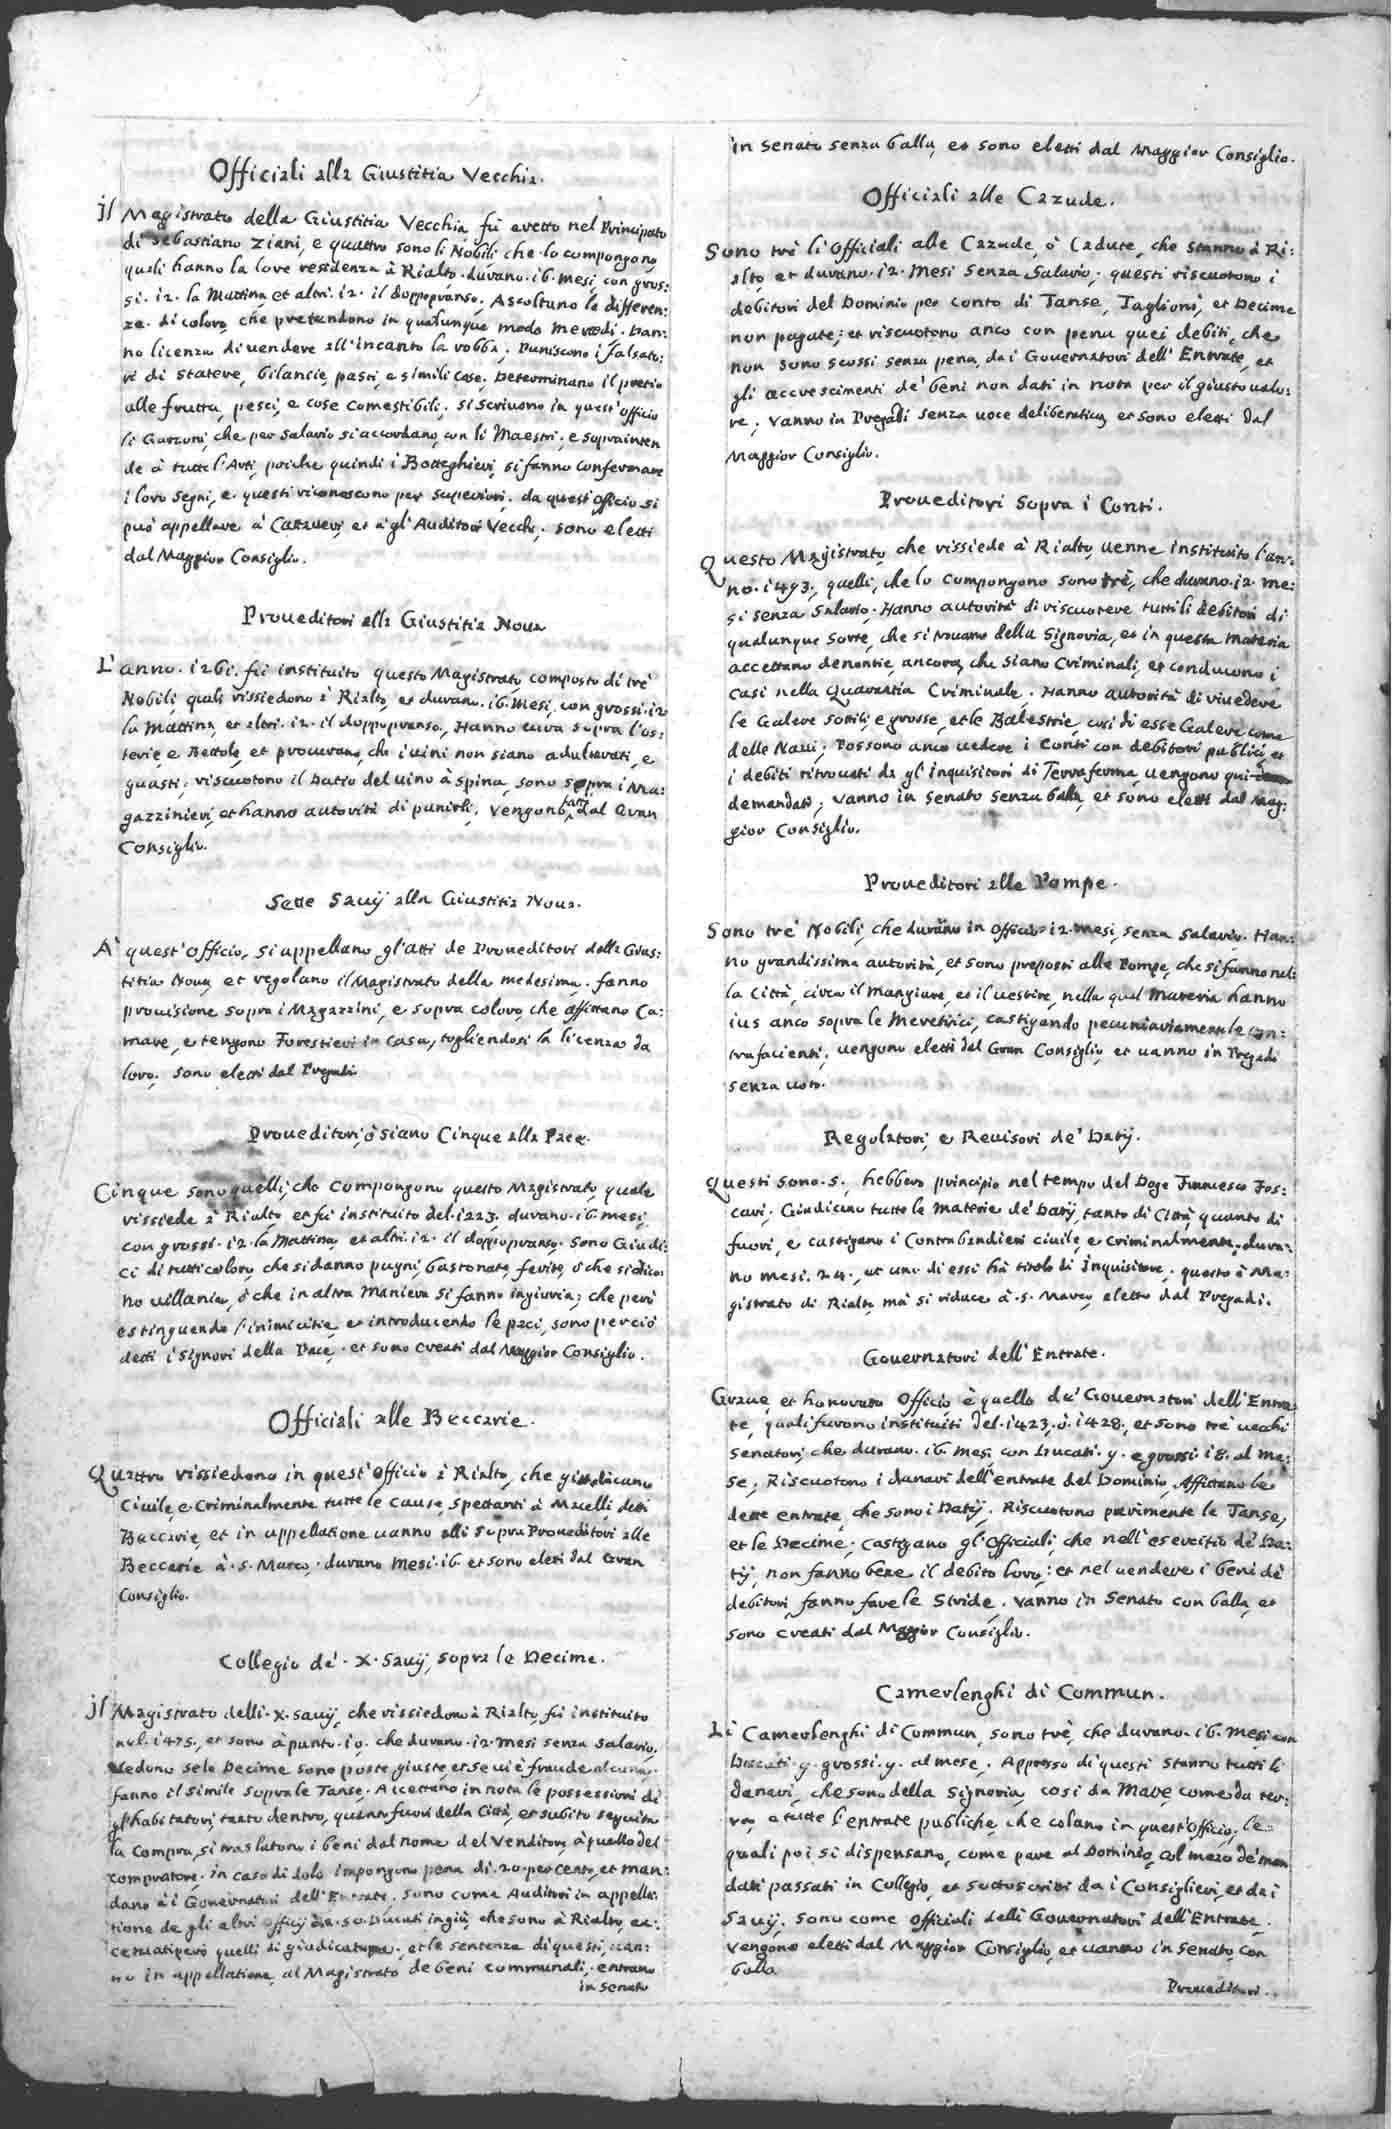 Officiali alla Giustitia Vecchia.
Il Magistrato della Giustitia Vecchia fù eretto nel Principato
di Sebastiano Ziani, e quattro sono li Nobili che lo compongono,
quali hanno la loro residenza à Rialto. durano. i6. mesi, con gros:
si. i2. la Mattina, et altri. i2. il doppopranso. Ascoltano le differen:
ze di coloro, che pretendono in qualunque modo Mercedi. Han:
no licenza di vendere all'incanto la robba. Puniscono i falsato:
ri di statere, bilancie, passi, e simili cose. Determinano il pretio
alle frutta, pesci, e cose comestibili. si scrivono in quest'officio
li Garzoni, che per salario si accordano, con li Maestri. e soprainten
de à tutte l'Arti, poiche quindi i Botteghieri, si fanno confermare
i loro segni, e questi riconoscono per superiori. da quest'officio si
può appellare à Cattaueri, et à gl'Auditori Vecchi. sono eletti
dal Maggior Consiglio.
Proueditori alla Giustitia Noua
L'anno. i26i. fù instituito questo Magistrato, composto di trè
Nobili, quali rissiedono à Rialto, et durano. i6. mesi, con grossi. i2
la Mattina, et altri. i2. il doppopranso. Hanno cura sopra l'os:
terie, e Bettole, et procurano, che i uini non siano adulterati, e
guasti. riscuotono il Datio del uino à spina, sono sopra i Ma:
gazzinieri, et hanno autorità di punirli. Vengono fatti dal Gran
Consiglio.
Sette Sauij alla Giustitia Noua.
A' quest'officio, si appellano gl'atti de Proueditori della Gius:
titia Noua, et regolano il Magistrato della medesima. fanno
prouisione sopra i Magazzini, e sopra coloro, che affittano Ca:
mare, e tengono Forestieri in casa, togliendosi la licenza da
loro. sono eletti dal Pregadi.
Proueditori, ò siano Cinque alla Pace.
Cinque sono quelli, che compongono questo Magistrato, quale
rissiede à Rialto, et fù instituito del. i223. durano. i6. mesi,
con grossi. i2. la Mattina, et altri. i2. il doppopranso. sono Giudi:
ci di tutti coloro, che si danno pugni, bastonate, ferite, ò che si dico
no uillania, ò che in altra maniera si fanno ingiuria; che però
estinguendo l'inimicitie, et introducendo le paci, sono perciò
detti i Signori della Pace. et sono creati dal Maggior Consiglio.
Officiali alle Beccarie.
Quattro rissiedono in quest'officio à Rialto, che giudicano
Ciuile, e Criminalmente tutte le cause, spettanti à Macelli, detti
Beccarie, et in appellatione uanno alli sopra Proueditori alle
Beccarie à. S. Marco. durano mesi. i6. et sono eleti dal Gran
Consiglio.
Collegio de'. X. Sauij, sopra le Decime.
Il Magistrato delli. X. Sauij, che rissiedono à Rialto, fù instituito
nel. i475., et sono à punto. i0. che durano. i2. mesi senza salario.
Vedono se le Decime sono poste giuste, et se ui è fraude alcuna.
fanno il simile sopra le Tanse. Accettano in nota le possessioni di
gl'habitatori, tanto dentro, quanto fuori della Città, et subito seguita
la compra, si traslatano i beni dal nome del Venditore, à quello del
compratore. in caso di dolo impongono pena di. 20. per cento, et man:
dano à i Gouernatori dell'Entrate. sono come Auditori in appella:
tione de gli altri officij da. 50. Ducati in giù, che sono à Rialto, ec:
cettuati però quelli di giudicatura. et le sentenze di questi, uan:
no in appellatione, al Magistrato de beni communali. entrano
in senato
in senato senza balla, et sono eletti dal Maggior Consiglio.
Officiali alle Cazude.
Sono trè li Officiali alle Cazude, ò Cadute, che stanno à Ri:
alto, et durano. i2. Mesi senza salario. questi riscuotono i
debitori del Dominio per conto di Tanse, Taglioni, et Decime
non pagate; et riscuotono anco con pena quei debiti, che
non sono scossi senza pena, da i Gouernatori dell'Entrate, et
gli accrescimenti de' beni non dati in nota per il giusto ualo:
re. Vanno in Pregadi senza uoce deliberatiua, et sono eletti dal
Maggior Consiglio.
Proueditori Sopra i Conti.
Questo Magistrato, che rissiede à Rialto, uenne instituito l'an:
no. i493., quelli, che lo compongono sono trè, che durano. i2. me:
si senza salario. Hanno autorità di riscuotere tutti li debitori di
qualunque sorte, che si trouano della Signoria, et in questa materia
accettano denontie, ancora, che siano Criminali, et conducono i
casi nella Quarantia Criminale. Hanno autorità di riuedere
le Galere sottili, e grosse, et le Balestrie, così di esse Galere come
delle Naui; Possono anco uedere i Conti con debitori publici, et
i debiti ritrouati da gl'inquisitori di Terraferma, uengono qui
demandati; Vanno in senato senza balla, et sono eletti dal Mag:
gior Consiglio.
Proueditori alle Pompe.
Sono trè Nobili, che durano in officio i2. mesi, senza salario. Han:
no grandissima autorità, et sono preposti alle Pompe, che si fanno nel:
la Città, circa il mangiare, et il uestire, nella qual materia hanno
ius anco sopra le Meretrici, castigando pecuniariamente le con:
trafacienti. uengono eletti dal Gran Consiglio, et uanno in Pregadi
senza uoto.
Regolatori, e Reuisori de' Datij.
Questi sono. 5., hebbero principio nel tempo del Doge Francesco Fos:
cari. Giudicano tutte le materie de' Datij, tanto di Città, quanto di
fuori, e castigano i Contrabandieri ciuile, e criminalmente. dura:
no mesi. 24., et uno di essi hà titolo di Inquisitore. questo è Ma:
gistrato di Rialto, mà si riduce à. S. Marco, eletto dal Pregadi.
Gouernatori dell'Entrate.
Graue, et honorato officio è quello de' Gouernatori dell'Entra:
te, quali furono instituiti del. i423. ò. i428., et sono trè uechi
senatori, che durano. i6. mesi, con Ducati. y. e grossi. i8. al me:
se. Riscuotono i danari dell'entrate del Dominio. Affittano le
dette entrate, che sono i Datij. Riscuotono parimente le Tanse,
et le Decime. Castigano gl'Officiali, che nell'esercitio de' Da:
tij, non fanno bene il debito loro: et nel uendere i beni de'
debitori, fanno fare le Stride. Vanno in Senato con balla, et
sono creati dal Maggior Consiglio.
Camerlenghi di Commun.
Li Camerlenghi di Commun, sono trè, che durano. i6. mesi con
Ducati. y. grossi. y. al mese. Appresso di questi stanno tutti li
danari, che sono della Signoria, così da Mare, come da ter:
ra, e tutte l'entrate publiche, che colano in quest'officio, le
quali poi si dispensano, come pare al Dominio, col mezo de' man
dati passati in Collegio, et sottoscritti da i Consiglieri, et da i
Sauij. sono come Officiali delli Gouernatori dell'Entrate.
Vengono eletti dal Maggior Consiglio, et uanno in Senato, con
balla.
Proueditori.